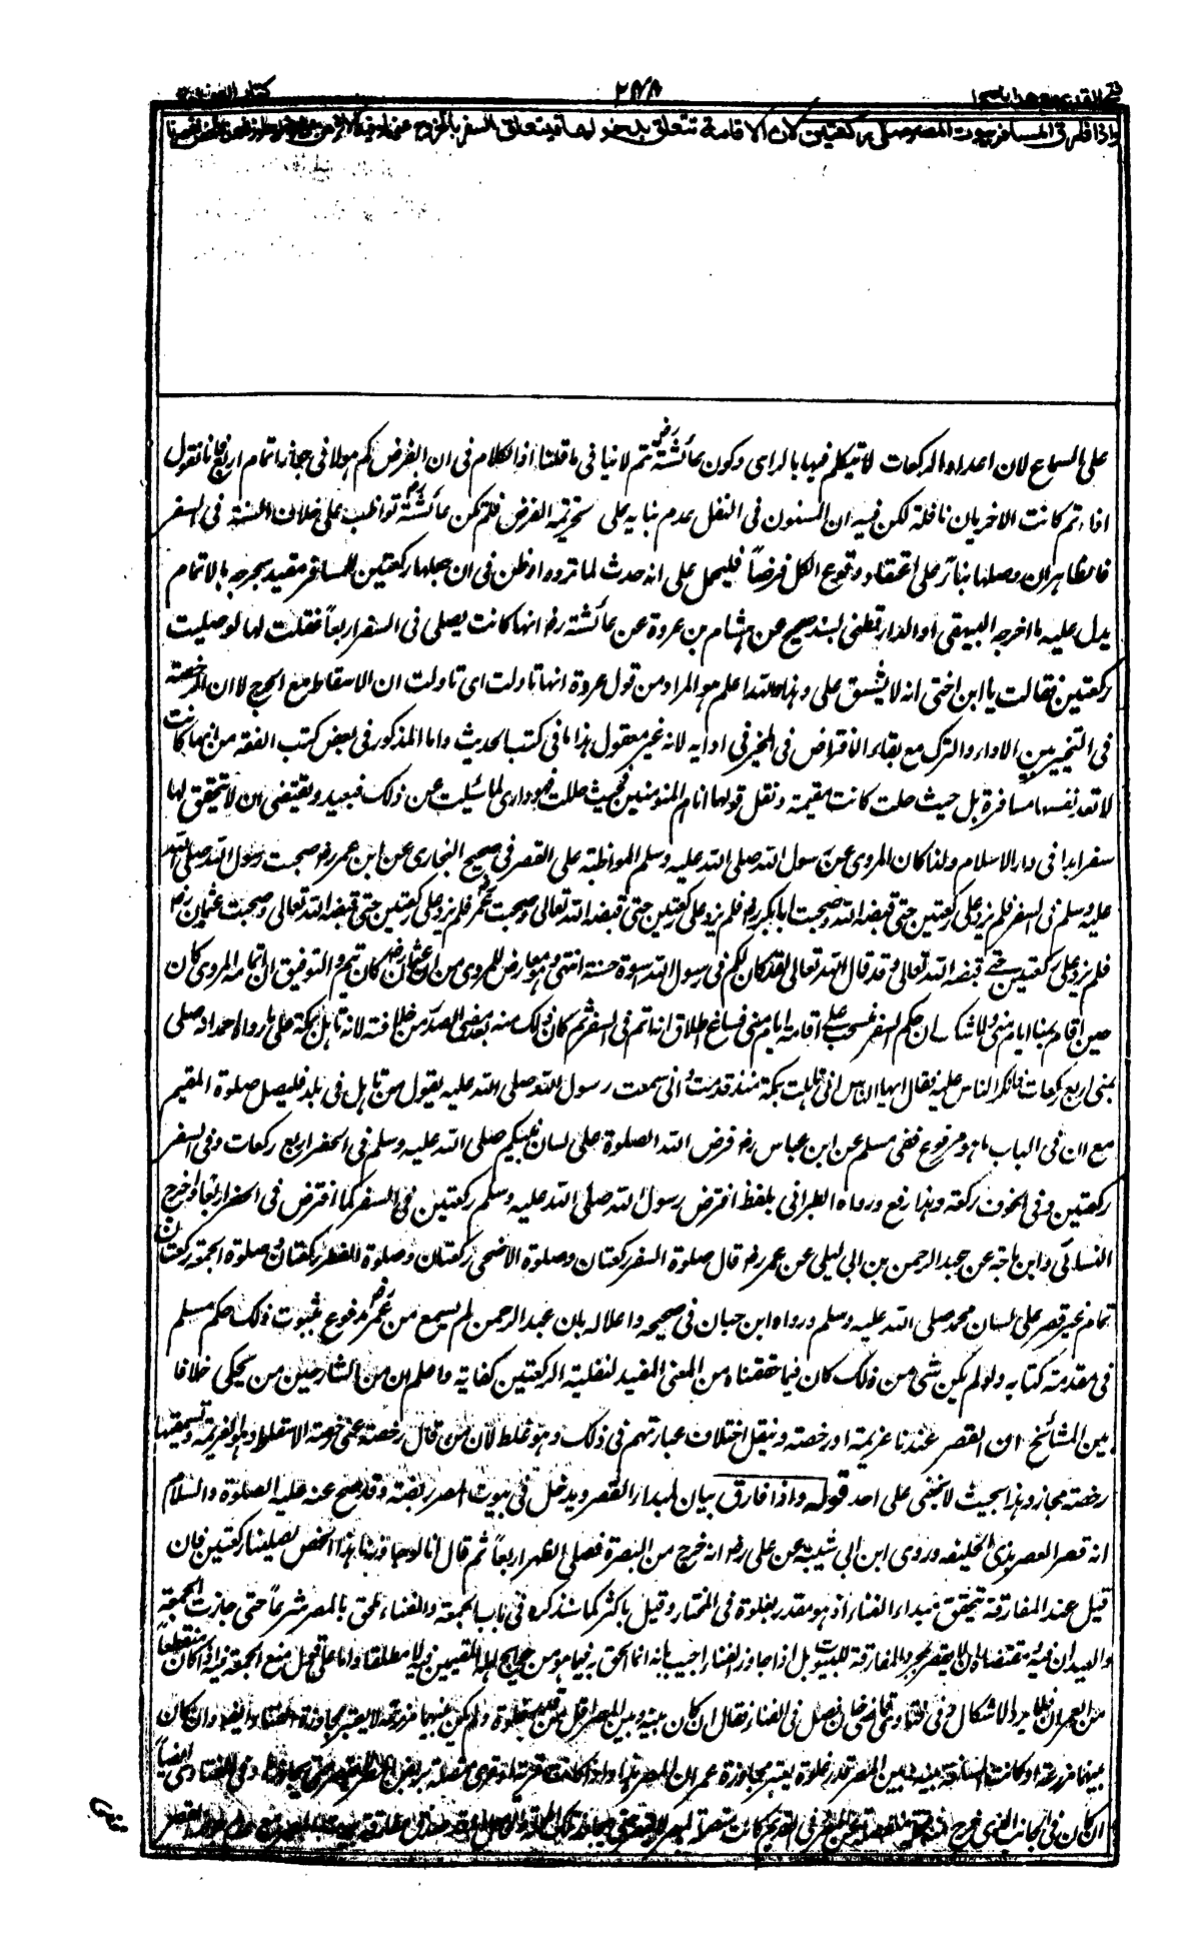 فتح القدير مع هداية
٢٨٨
كتاب الصلوة
واذا فارق المسافر بيوت المصر صلى ركعتين لان الاقامة تتعلق بدخولها فيتعلق السفر بالخروج عنها
على السماع لان اعداد الركعات لا يتكلم فيها بالراى وكون عائشة رض تتم لا ينافى ما قلنا اذ الكلام فى ان الفرض كم هو لا فى جواز اتمام اربع فانا نقول
اذا تم كانت الاخريان نافلة لكن فيه ان المسنون فى النفل عدم بنائه على تحريمة الفرض فلم تكن عائشة رض تواظب على خلاف السنة فى السفر
فالظاهر ان وصلها بناء على اعتقاد وقوع الكل فرضاً فليحمل على انه حدث لها تردد او ظن فى ان جعلها ركعتين للمسافر مقيد بحرجه بالاتمام
يدل عليه ما اخرجه البيهقى والدارقطنى بسند صحيح عن هشام بن عروة عن عائشة رض انها كانت يصلى فى السفر اربعاً فقلت لها لو صليت
ركعتين فقالت يا ابن اختى انه لا يشق على وهذا والله اعلم هو المراد من قول عروة انها تاولت اى تاولت ان الاسقاط مع الحرج لا ان الرخصة
فى التخيير بين الاداء والترك مع بقاء الافتراض فى المخير فى ادائه لانه غير معقول هذا ما فى كتب الحديث واما المذكور فى بعض كتب الفقه من انها كانت
لا تعد نفسها مسافرة بل حيث حلت كانت مقيمة ونقل قولها انا ام المؤمنين فحيث حللت فهو دارى لما سئلت عن ذلك فبعيد ويقتضى ان لا يتحقق لها
سفر ابدا فى دار الاسلام ولذا كان المروى عن رسول الله صلى الله عليه وسلم المواظبة على القصر فى صحيح البخارى عن ابن عمر رض صحبت رسول الله صلى الله
عليه وسلم فى السفر فلم يزد على ركعتين حتى قبضه الله وصحبت ابا بكر رض فلم يزد على ركعتين حتى قبضه الله تعالى وصحبت عمر فلم يزد على ركعتين حتى قبضه الله تعالى وصحبت عثمان رض
فلم يزد على ركعتين حتى قبضه الله تعالى وقد قال الله تعالى لقد كان لكم فى رسول الله اسوة حسنة انتهى وهو معارض للمروى من ان عثمان رض كان يتم والتوفيق ان اتمامه المروى كان
حين اقام بمنا ايام منى ولا شك ان حكم السفر منسحب على اقامة ايام منى فساغ اطلاق انه اتم فى السفر ثم كان ذلك منه بعد مضى الصدر من خلافته لانه تاهل بمكة على ما رواه احمد انه صلى
بمنى اربع ركعات فانكر الناس عليه فقال ايها الناس انى تاهلت بمكة منذ قدمت وانى سمعت رسول الله صلى الله عليه يقول من تاهل فى بلد فليصل صلوة المقيم
مع ان فى الباب ما هو مرفوع ففى مسلم عن ابن عباس رض فرض الله الصلوة على لسان نبيكم صلى الله عليه وسلم فى الحضر اربع ركعات وفى السفر
ركعتين وفى الخوف ركعة وهذا رفع ورواه الطبرانى بلفظ افترض رسول الله صلى الله عليه وسلم ركعتين فى السفر كما افترض فى الحضر اربعا واخرج
النسائى وابن ماجة عن عبد الرحمن بن ابى ليلى عن عمر رض قال صلوة السفر ركعتان وصلوة الاضحى ركعتان وصلوة الفطر ركعتان وصلوة الجمعة ركعتان
تمام غير قصر على لسان محمد صلى الله عليه وسلم ورواه ابن حبان فى صحيحه واعلاله بان عبد الرحمن لم يسمع من عمر رض مدفوع بثبوت ذلك حكم مسلم
فى مقدمة كتابه ولو لم يكن شئ من ذلك كان فيما حققناه من المعنى المفيد لنفلية الركعتين كفاية واعلم ان من الشارحين من يحكى خلافا
بين المشائخ ان القصر عندنا عزيمة او رخصة وينقل اختلاف عبارتهم فى ذلك وهو غلط لان من قال رخصة عنى رخصة الاسقاط وهو العزيمة وتسميتها
رخصة مجاز وهذا بحيث لا يخفى على احد قوله واذا فارق بيان لمبدأ القصر ويدخل فى بيوت المصر ربضه وقد صح عنه عليه الصلوة والسلام
انه قصر العصر بذى الحليفه وروى ابن ابى شيبة عن على رض انه خرج من البصرة فصلى الظهر اربعاً ثم قال انا لو جاوزنا هذا الخص لصلينا ركعتين فان
قيل عند المفارقة يتحقق مبداء الفناء اذ هو مقدر بغلوة فى المختار وقيل باكثر كما سنذكره فى باب الجمعة والفناء ملحق بالمصر شرعاً حتى جازت الجمعة
والعيدان فيه ومقتضاه ان لا يقصر بمجرد المفارقة للبيوت بل اذا جاوز الفناء اجيب بانه انما الحق به فيما هو من حوائج اهله المقيمين فيه لا مطلقا واما على قول من منع الجمعة فيه اذا كان منقطعاً
من العمران فلا يرد الاشكال وفى فتاوى قاضى خان فصل فى الفناء فقال ان كان بينه وبين المصر اقل من قدر غلوة ولم يكن بينهما مزرعة يعتبر مجاوزة الفناء ايضا وان كان
بينهما مزرعة او كانت المسافة بينه وبين المصر قدر غلوة يعتبر مجاوزة عمران المصر